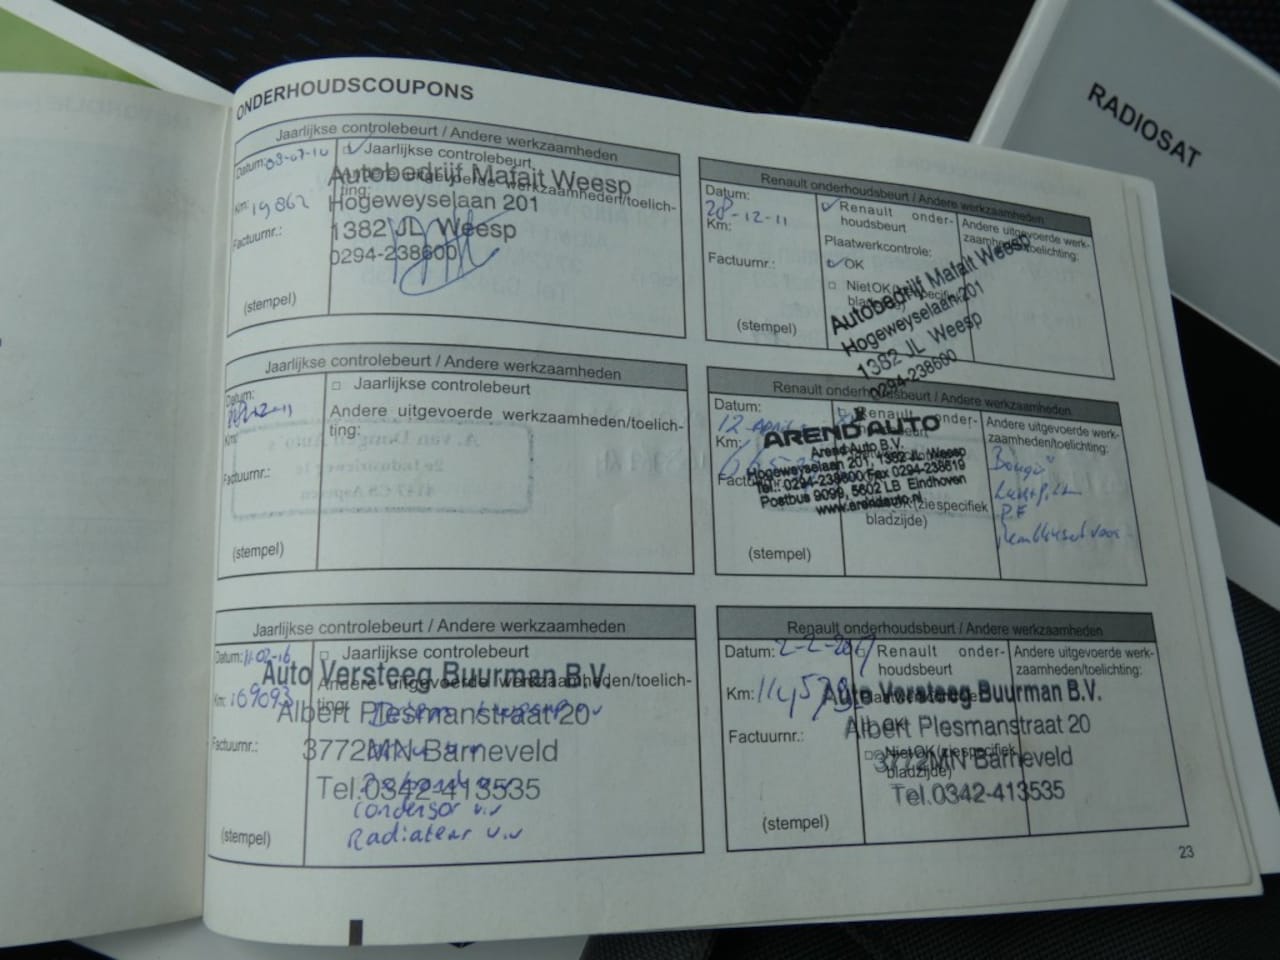 ONDERHOUDSCOUPONS
Jaarlijkse controlebeurt / Andere werkzaamheden
Datum: 09-07-10
Jaarlijkse controlebeurt
Andere uitgevoerde werkzaamheden/toelich-
ting:
Km: 19862
Factuurnr.:
(stempel)
Autobedrijf Mafait Weesp
Hogeweyselaan 201
1382 JL Weesp
0294-238600
Renault onderhoudsbeurt / Andere werkzaamheden
Datum:
28-12-11
Km:
Factuurnr.:
(stempel)
Renault onder-
houdsbeurt
Plaatwerkcontrole:
OK
Niet OK (zie specifiek
bladzijde)
Andere uitgevoerde werk-
zaamheden/toelichting:
Autobedrijf Mafait Weesp
Hogeweyselaan 201
1382 JL Weesp
0294-238600
Jaarlijkse controlebeurt / Andere werkzaamheden
Datum:
Km:
Factuurnr.:
(stempel)
Jaarlijkse controlebeurt
Andere uitgevoerde werkzaamheden/toelich-
ting:
Renault onderhoudsbeurt / Andere werkzaamheden
Datum:
12 April
Km:
(stempel)
Renault onder-
OK (zie specifiek
bladzijde)
Andere uitgevoerde werk-
zaamheden/toelichting:
AREND AUTO
Arend Auto B.V.
Hogeweyselaan 201, 1382 JL Weesp
Tel.: 0294-238600 Fax 0294-238619
Postbus 9099, 5602 LB Eindhoven
www.arendauto.nl
Jaarlijkse controlebeurt / Andere werkzaamheden
Datum: 11-02-16
Km: 169093
Factuurnr.:
(stempel)
Jaarlijkse controlebeurt
Andere uitgevoerde werkzaamheden/toelich-
ting:
Auto Versteeg Buurman B.V.
Albert Plesmanstraat 20
3772MN Barneveld
Tel.0342-413535
Condensor v.v
Radiateur v.v
Renault onderhoudsbeurt / Andere werkzaamheden
Datum: 2-2-2017
Km:
Factuurnr.:
(stempel)
Renault onder-
houdsbeurt
OK
Niet OK (zie specifiek
bladzijde)
Andere uitgevoerde werk-
zaamheden/toelichting:
Auto Versteeg Buurman B.V.
Albert Plesmanstraat 20
3772MN Barneveld
Tel.0342-413535
23
RADIOSAT